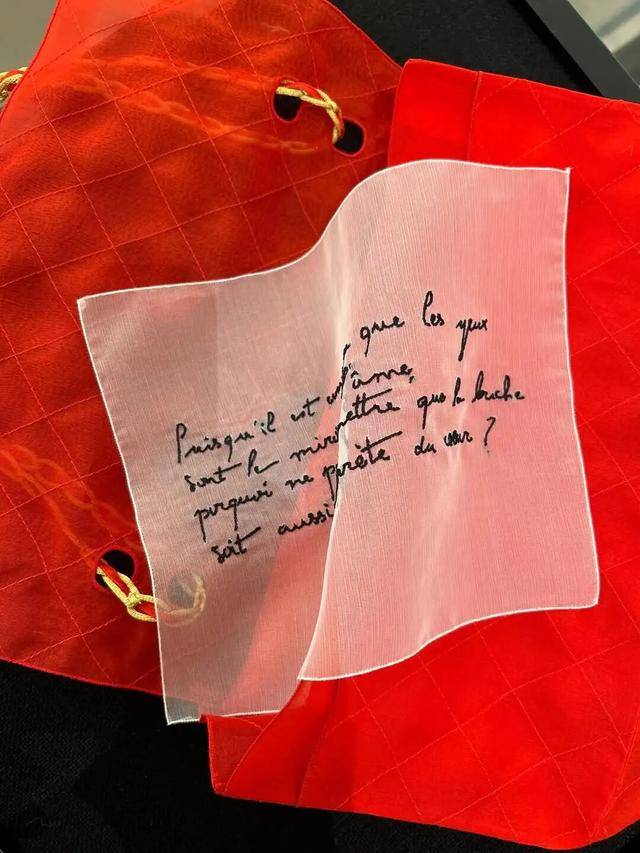 Puisqu'il est que les yeux
sont le l'âme,
pourquoi ne mettre que la bouche
soit aussi prète du cœur ?